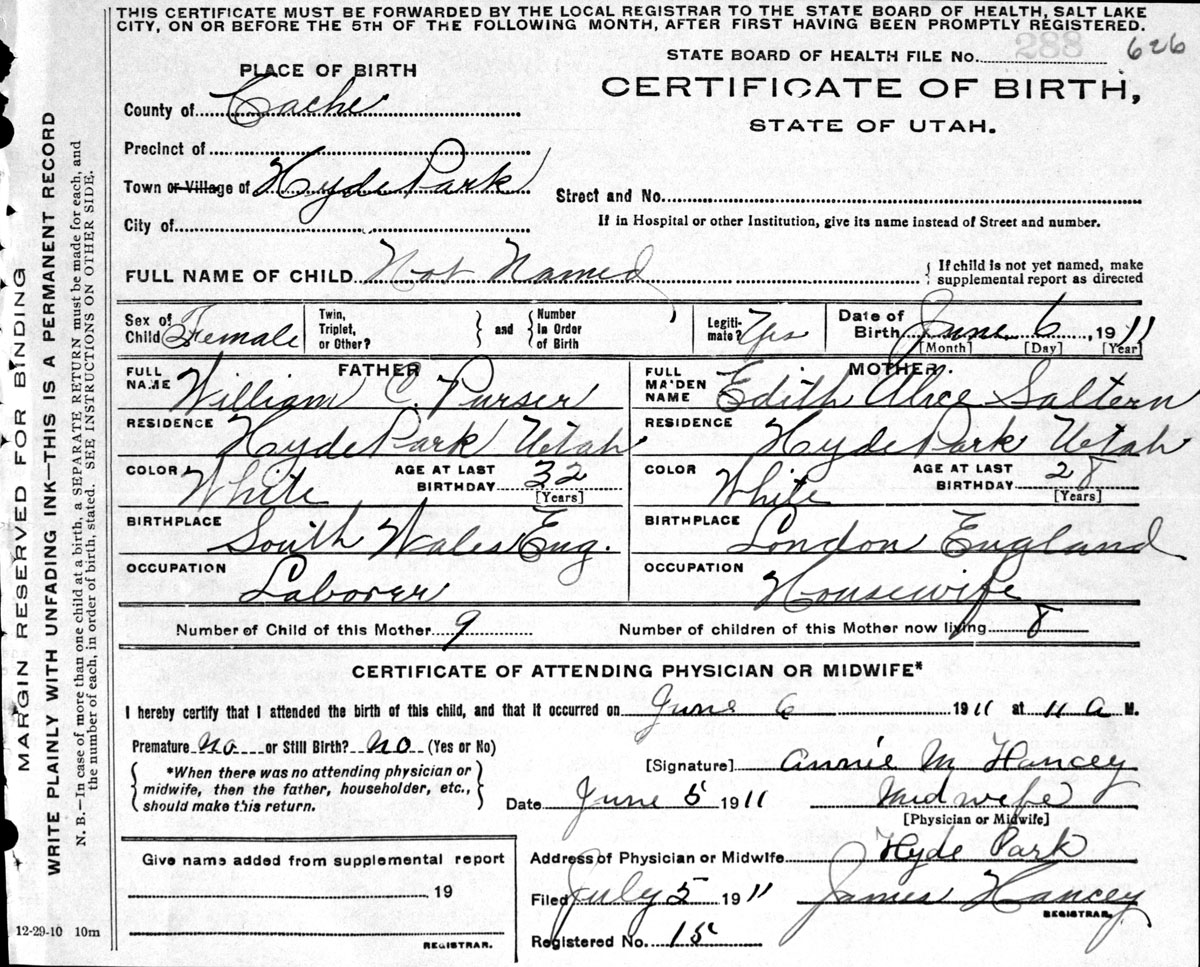 THIS CERTIFICATE MUST BE FORWARDED BY THE LOCAL REGISTRAR TO THE STATE BOARD OF HEALTH, SALT LAKE
CITY, ON OR BEFORE THE 5TH OF THE FOLLOWING MONTH, AFTER FIRST HAVING BEEN PROMPTLY REGISTERED.
STATE BOARD OF HEALTH FILE No. 288 626
PLACE OF BIRTH
CERTIFICATE OF BIRTH,
County of Cache
STATE OF UTAH.
Precinct of
Town or Village of Hyde Park
Street and No.
City of
If in Hospital or other Institution, give its name instead of Street and number.
FULL NAME OF CHILD Not Named
{ If child is not yet named, make
supplemental report as directed
Sex of Child Female
Twin, Triplet, or Other? } and { Number In Order of Birth
Legiti-mate? Yes
Date of Birth June 6, 1911
[Month] [Day] [Year]
FATHER
FULL NAME William C. Purser
RESIDENCE Hyde Park Utah
COLOR White AGE AT LAST BIRTHDAY 32 [Years]
BIRTHPLACE South Wales Eng.
OCCUPATION Laborer
MOTHER.
FULL MAIDEN NAME Edith Alice Saltern
RESIDENCE Hyde Park Utah
COLOR White AGE AT LAST BIRTHDAY 28 [Years]
BIRTHPLACE London England
OCCUPATION Housewife
Number of Child of this Mother 9 Number of children of this Mother now living 8
CERTIFICATE OF ATTENDING PHYSICIAN OR MIDWIFE*
I hereby certify that I attended the birth of this child, and that it occurred on June 6 1911 at 11 a M.
Premature no or Still Birth? no (Yes or No)
{ *When there was no attending physician or
midwife, then the father, householder, etc.,
should make this return. }
[Signature] Annie M Hancey
Date June 5 1911 Midwife
[Physician or Midwife]
Address of Physician or Midwife Hyde Park
Give name added from supplemental report
19
REGISTRAR.
Filed July 5 1911 James Hancey
REGISTRAR.
Registered No. 15
MARGIN RESERVED FOR BINDING
WRITE PLAINLY WITH UNFADING INK—THIS IS A PERMANENT RECORD
N. B.—In case of more than one child at a birth, a SEPARATE RETURN must be made for each, and
the number of each, in order of birth, stated. SEE INSTRUCTIONS ON OTHER SIDE.
12-29-10 10m